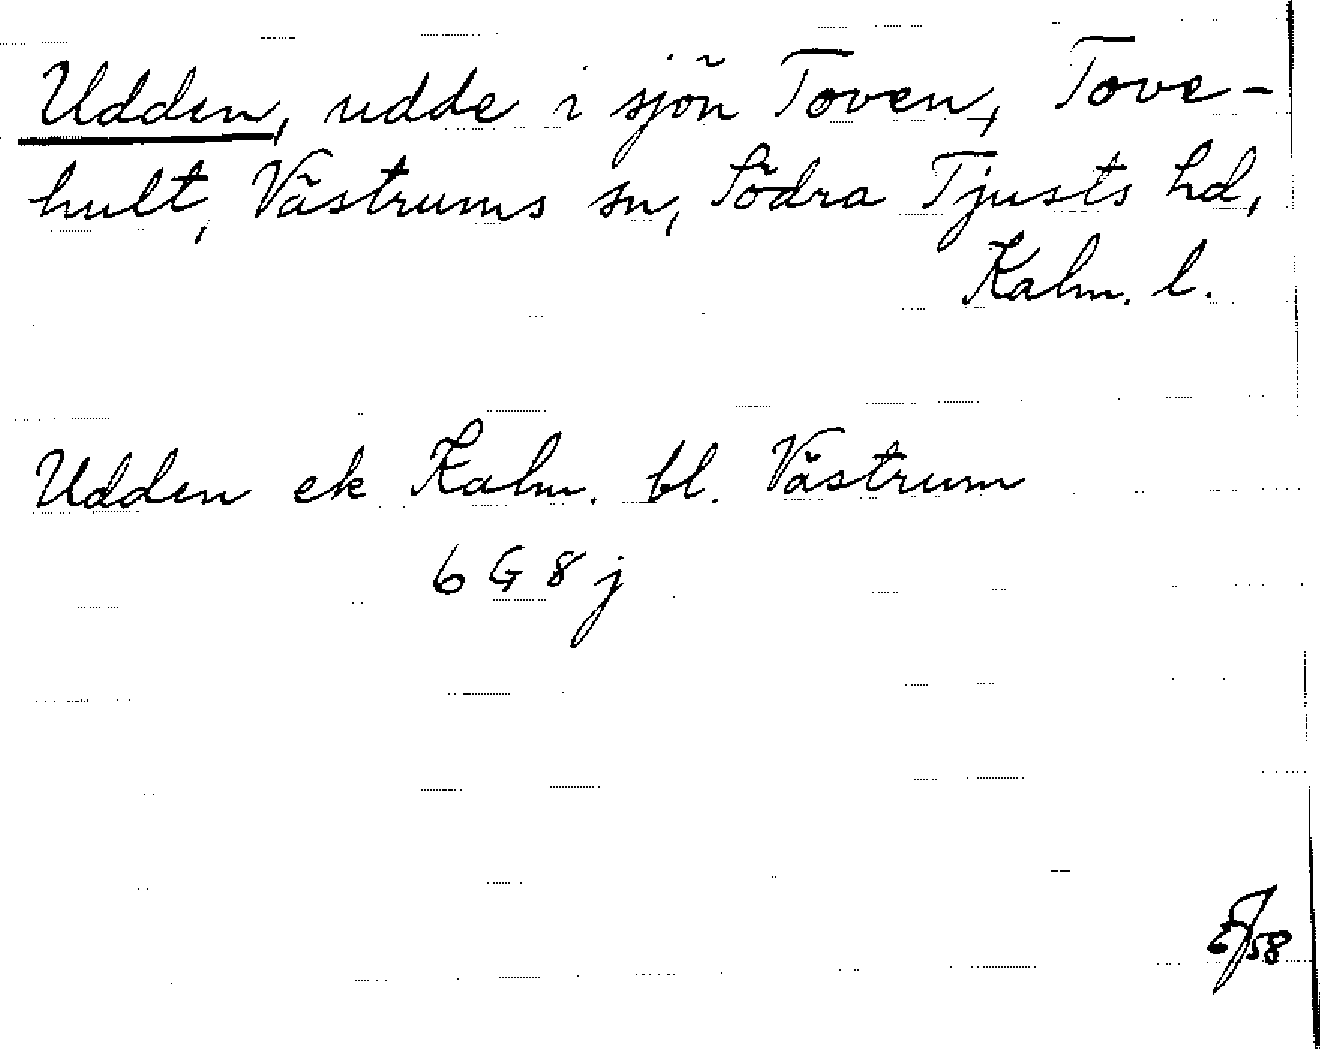 Udden, udde i sjön Toven, Tove-
hult, Västrums sn, Södra Tjusts hd,
Kalm. l.
Udden ek Kalm. bl. Västrum
6 G 8 j